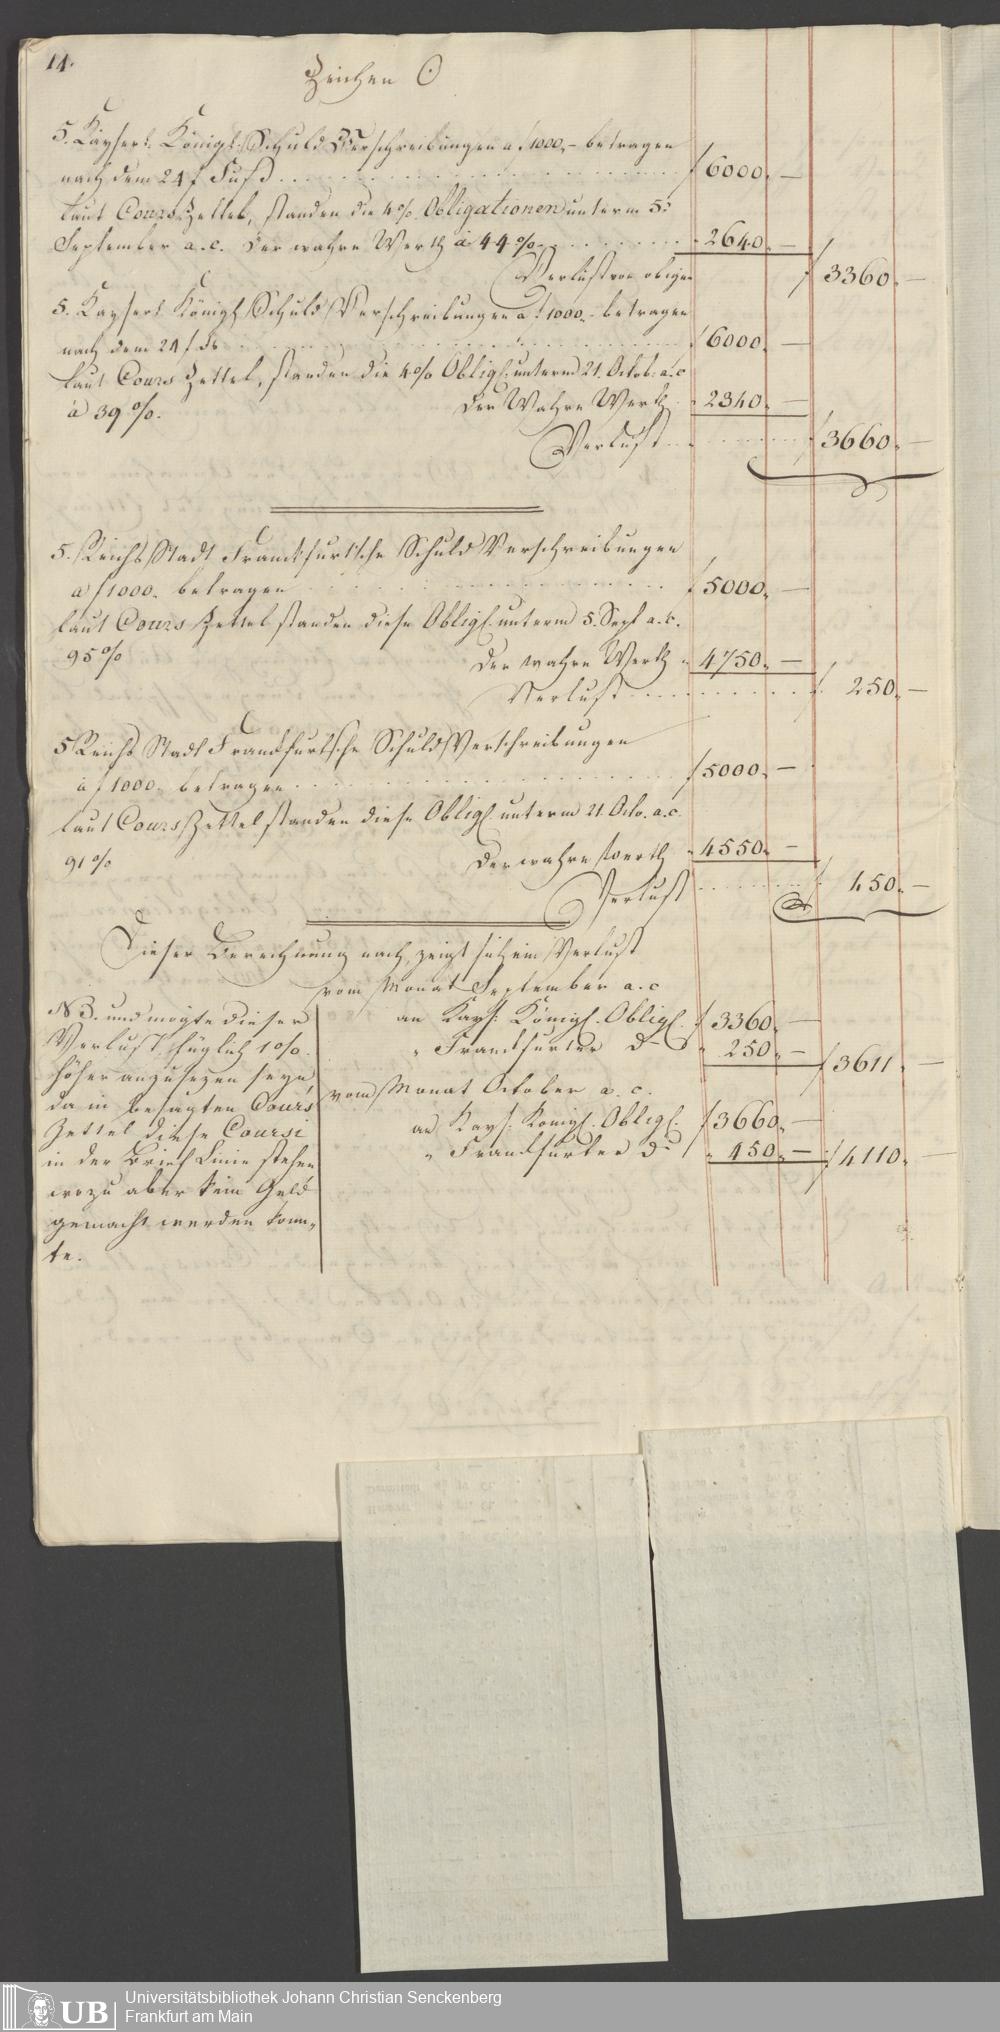 14.
Zeichen ʘ
5. Kayserl: Königl: Schuld Verschreibungen a f 1000,- betragen
nach dem 24 f Fuß . . . . f 6000. —
laut Cours Zettel, standen die 4% Obligationen unterm 5:
September a. c. der wahre Werth à 44%. . . . . " 2640. —
Verlust von obigen f 3360. —
5. Kayserl Königl Schuld Verschreibungen a f 1000,- betragen
nach dem 24 f do . . . . f 6000. —
laut Cours Zettel, standen die 4% Obligl. unterm 21. Octob. a. c
à 39%. der Wahre Werth " 2340. —
Verlust . . . . f 3660. —
5. Reichs Stadt Franckfurtsche Schuld Verschreibungen
a f 1000. betragen . . . . f 5000. —
laut Cours Zettel standen diese Obligl. unterm 5. Sept a. c.
95% der wahre Werth " 4750. —
Verlust . . . . f 250. —
5 Reichs Stadt Franckfurtsche Schuld Verschreibungen
à f 1000. betragen . . . . f 5000. —
laut Cours Zettel standen diese Obligl. unterm 21. Octo. a. c.
91% der wahre Werth " 4550. —
Verlust . . . . f 450. —
Dieser Berechnung nach, zeigt sich ein Verlust
vom Monat September a. c
an Kays: Königl. Obligl. f 3360. —
" Franckfurter do " 250. — f 3611. —
vom Monat October a. c.
an Kays: Königl. Obligl. f 3660. —
" Franckfurter do " 450. — f 4110. —
NB. und mögte dieser
Verlust, füglich 1%.
höher anzusezen seyn
da in besagten Cours
Zettel diese Coursi
in der Brief Linie stehen
wozu aber kein Geld
gemacht werden konn,,
te.
UB
Universitätsbibliothek Johann Christian Senckenberg
Frankfurt am Main